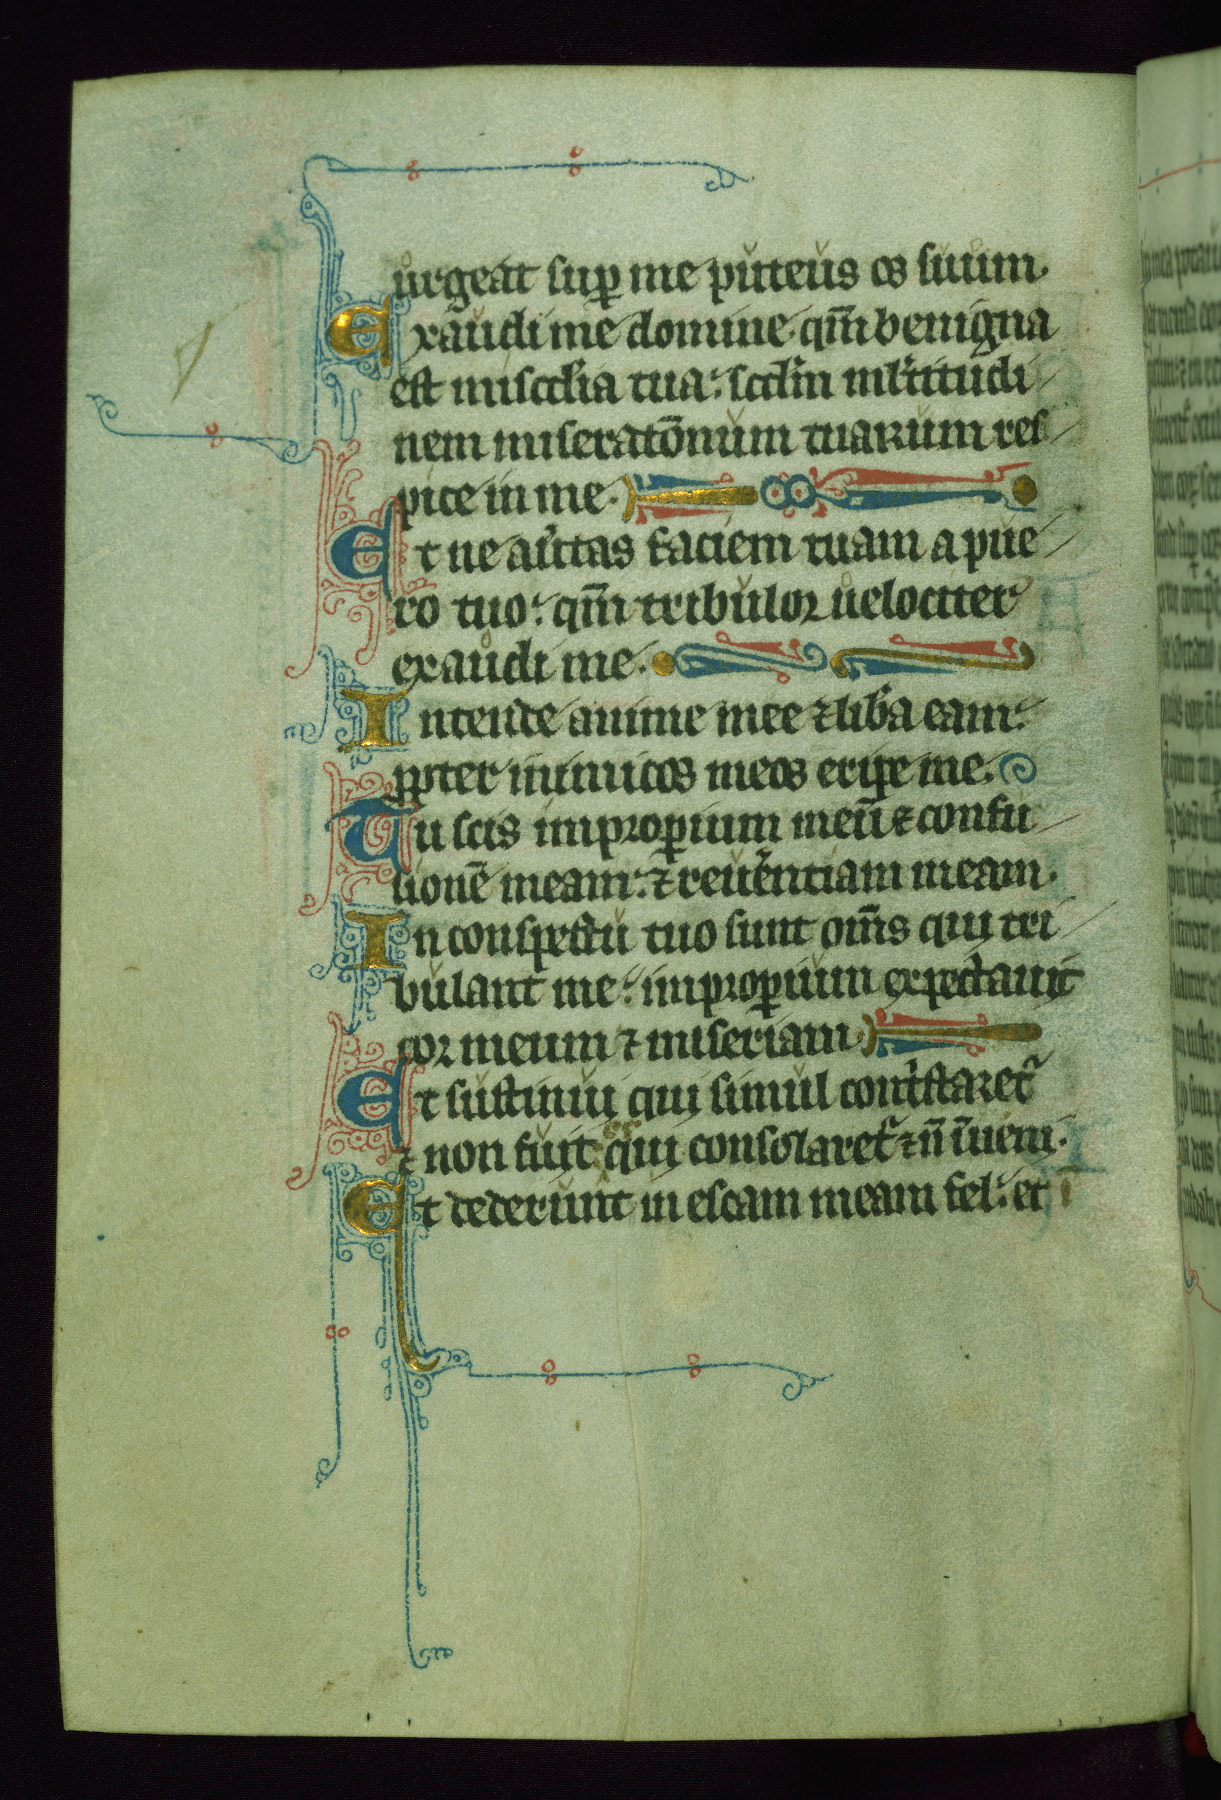 urgeat sup̱ me puteus os suum.
Exaudi me domine qm̄ benigna
est mis̄cd̓ia tua: sc̄dm̄ ml̓titudi
nem miseratōnum tuarum res
pice in me.
Et ne au̓tas faciem tuam a pue
ro tuo: qm̄ tribulor uelociter
exaudi me.
Intende anime mee ⁊ lib̓a eam:
ꝓpter inimicos meos eripe me.
Tu scis improꝑium meū ⁊ confu
sionē meam: ⁊ reuer̄entiam meam.
In conspectu tuo sunt om̄s qui tri
bulant me: improꝑium expectauit
cor meum ⁊ miseriam
Et sustinui qui simul contͥstaretᷣ
⁊ non fuit qui consolaretᷣ ⁊ n̄ īueni.
Et dederunt in escam meam fel: et